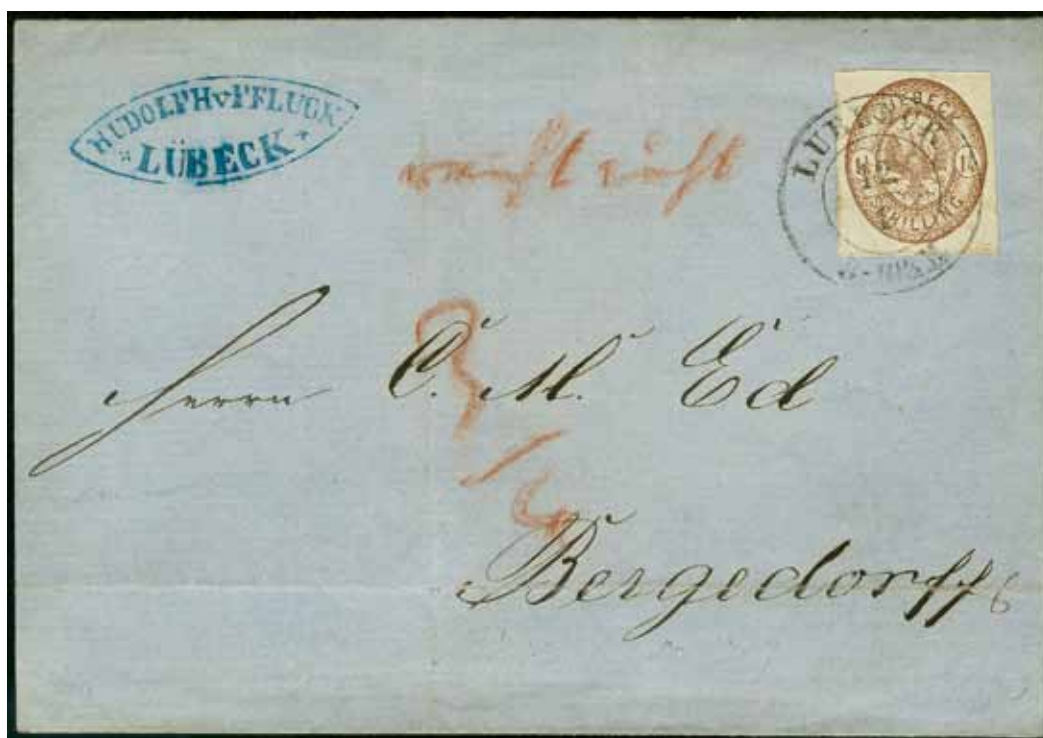 RUDOLPH v PFLUGK
LÜBECK
LUEBECK
SCHILLING
LÜBECK
Herrn C. M. Ed
Bergedorff